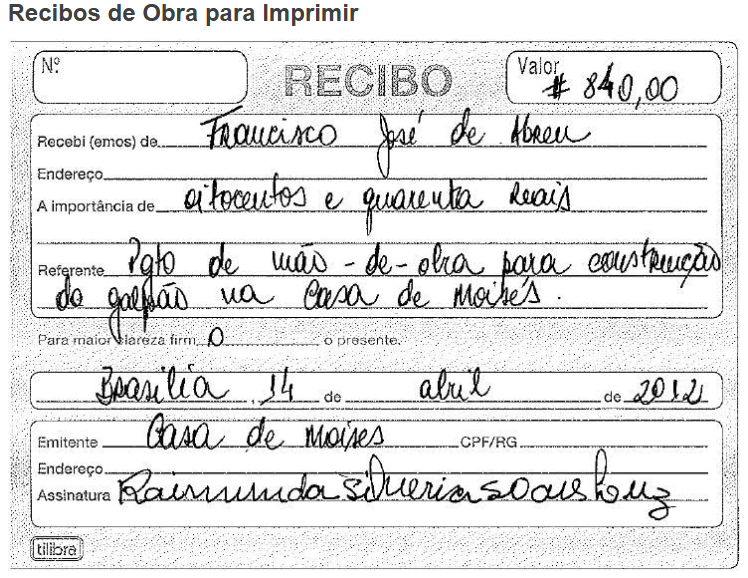 Recibos de Obra para Imprimir
Nº RECIBO Valor # 840,00
Recebi (emos) de Francisco José de Abreu
Endereço
A importância de oitocentos e quarenta reais
Referente Pgto de mão-de-obra para construção
do galpão na Casa de Moisés.
Para maior clareza firm o o presente.
Brasilia, 14 de abril de 2012
Emitente Casa de Moises CPF/RG
Endereço
Assinatura Raimunda Silveria Soares Luz
tilibra